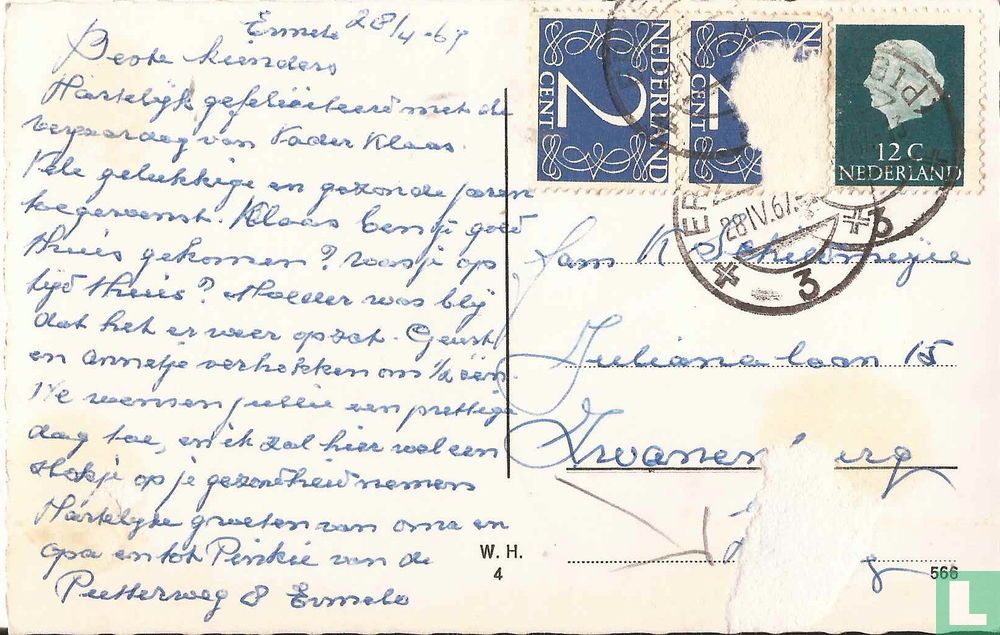 Ermelo 28/4-67
Beste kienders
Hartelijk gefeliciteerd met de
verjaardag van Vader Klaas.
Vele gelukkige en gezonde jaren
toegewenst. Klaas ben je goed
thuis gekomen? was je op
tijd thuis? Moeder was blij
dat het er weer opzat. Geurt
en Annetje vertrokken om 1/2 één.
We wensen jullie een prettige
dag toe, en ik zal hier wel een
slokje op je gezondheid nemen
Hartelijke groeten van oma en
opa en tot Pinkie van de
Putterweg 8 Ermelo
NEDERLAND
2
CENT
CENT
12 C
NEDERLAND
28 IV 67
3
3
Fam K Schilknegt
Julianalaan 15
Zwanenburg
W. H.
4
566
L